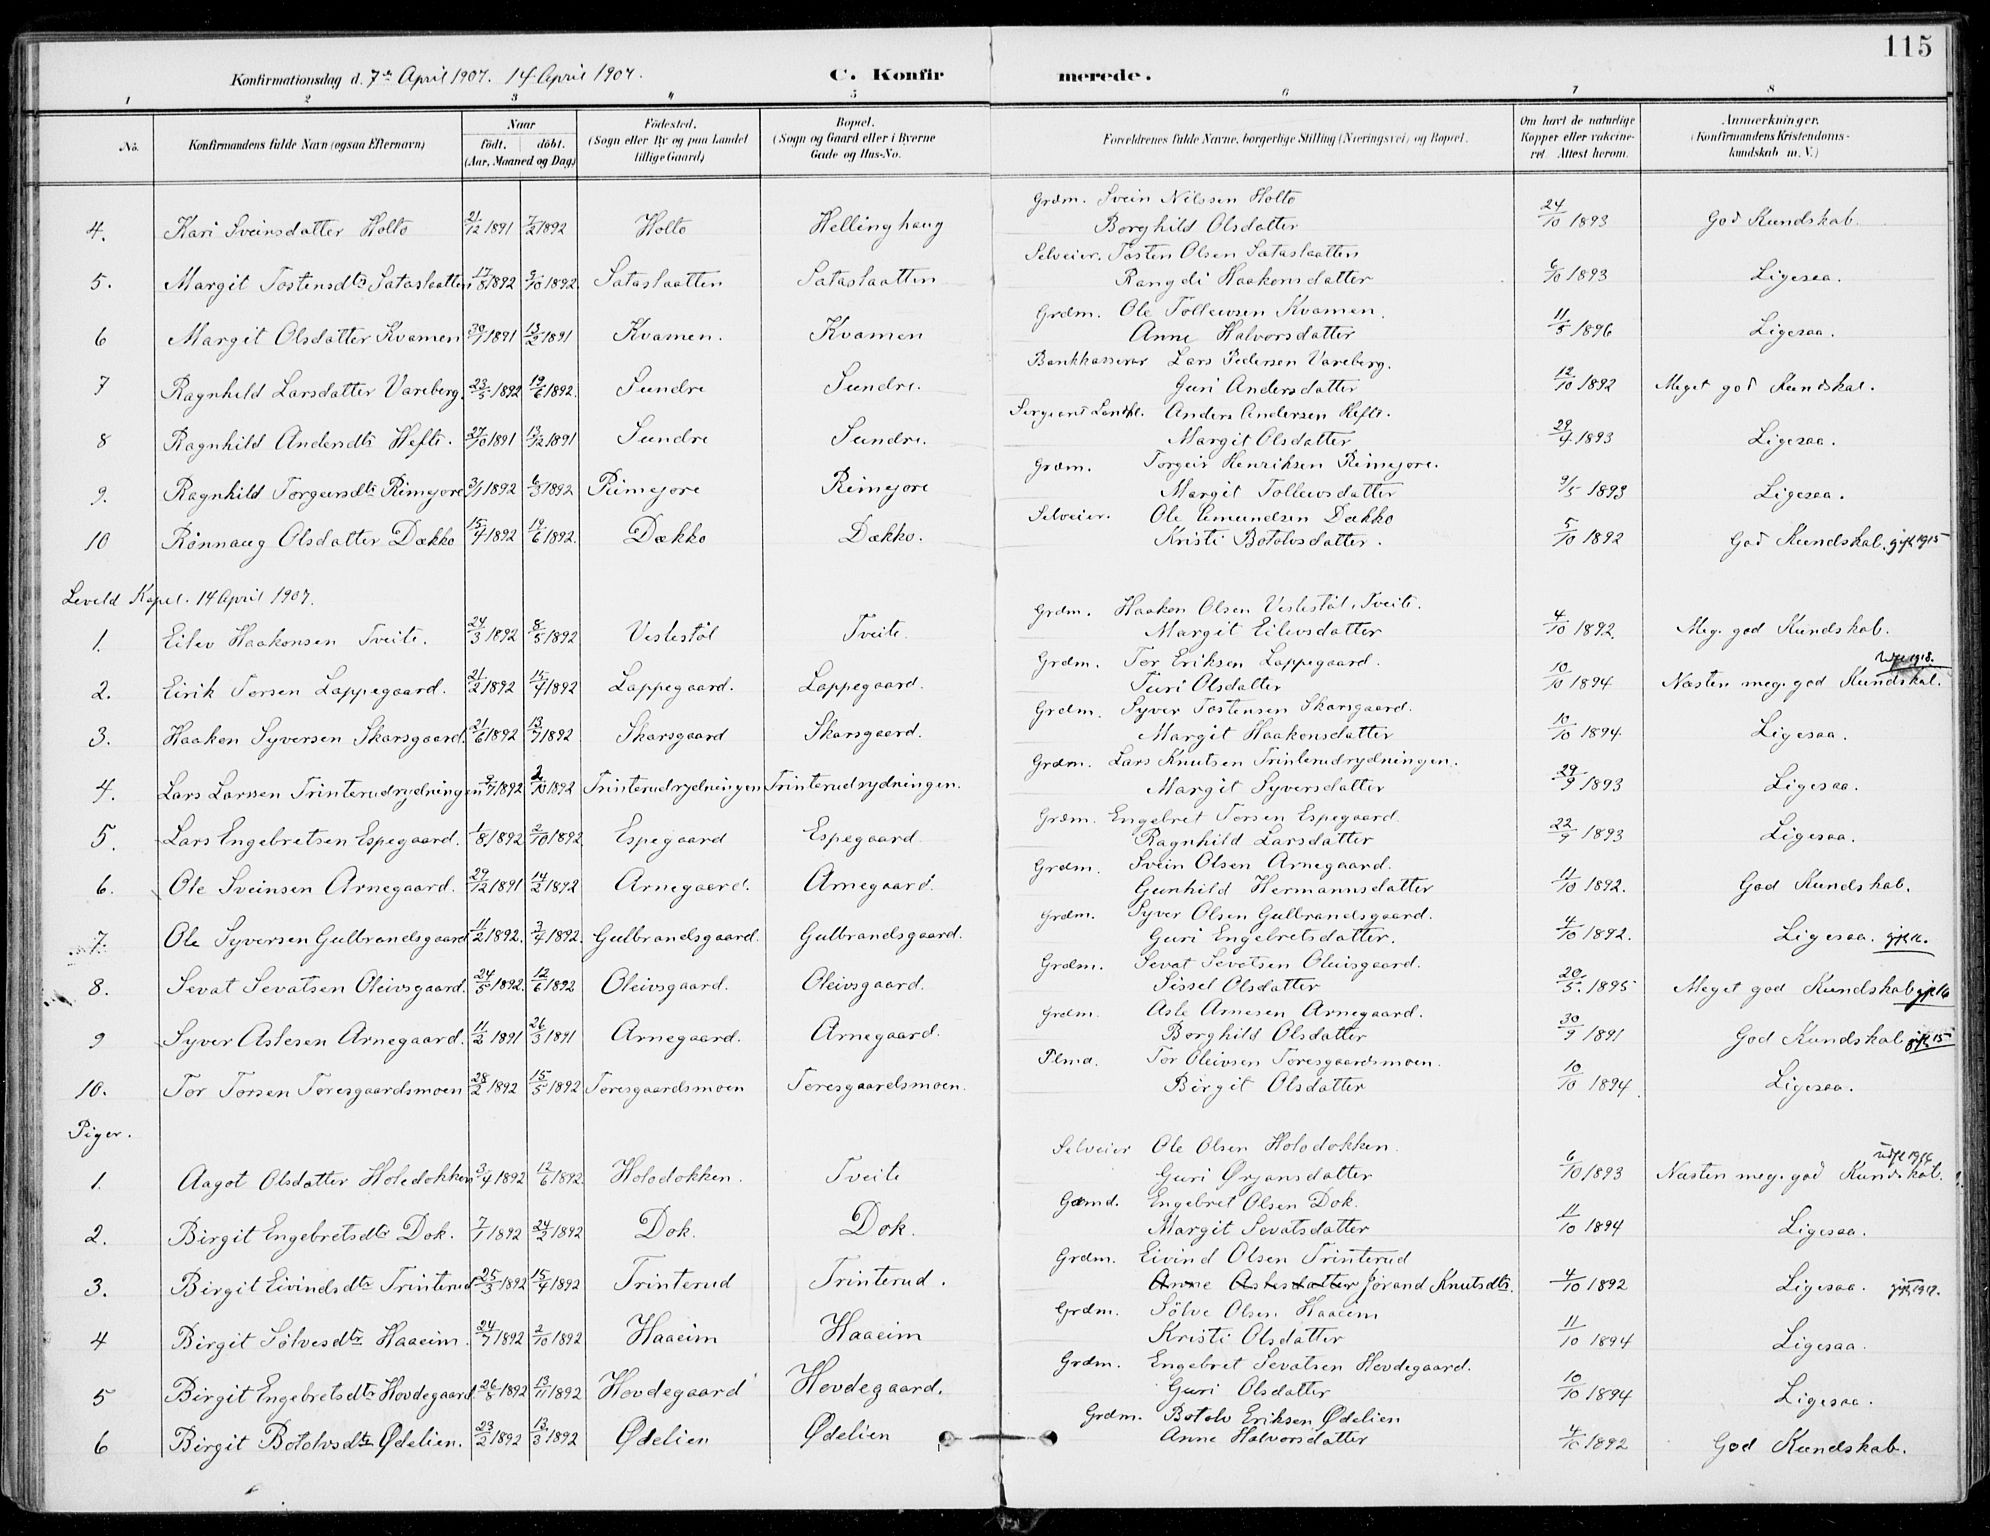 115
Konfirmationsdag d. 7de April 1907. 14 April 1907. C. Konfirmerede.
1 2 3 4 5 6 7 8
No. Konfirmandens fulde Navn (ogsaa Efternavn) Naar født. døbt. (Aar, Maaned og Dag) Fødested. (Sogn eller By og paa Landet tillige Gaard) Bopæl. (Sogn og Gaard eller i Byerne Gade og Hus-No. Forældrenes fulde Navne, borgerlige Stilling (Næringsvei) og Bopæl. Om havt de naturlige Kopper eller vakcineret. Attest herom. Anmærkninger. (Konfirmandens Kristendomskundskab m. V.)
Grdm. Svein Nilssen Holto
4. Kari Sveinsdatter Holto 21/12 1891 7/2 1892 Holto Hellinghaug Borghild Olsdatter 24/10 1893 God Kundskab.
Selveier. Tosten Olsen Sataslaatten
5. Margit Tostensdtr Sataslaatten 17/8 1892 9/10 1892 Sataslaatten Sataslaatten Rangdi Haakonsdatter 6/10 1893 Ligesaa.
Grdm. Ole Tollevsen Kvamen.
6 Margit Olsdatter Kvamen 1891 13/2 1891 Kvamen. Kvamen Anne Halvorsdatter 11/5 1896 Ligesaa.
Bankkasserer Lars Pedersen Vareberg.
7 Ragnhild Larsdatter Vareberg. 23/5 1892 19/6 1892. Sundre Sundre. Guri Andersdatter 12/10 1892 Meget god Kundskab.
Sergeant Anders Andersen Hefte.
8 Ragnhild Andersdtr Hefte. 27/10 1891 13/12 1891 Sundre Sundre. Margit Olsdatter 29/9 1893 Ligesaa.
Grdm. Torgeir Henriksen Rimejore.
9. Ragnhild Torgeirsdtr Rimejore 3/1 1892 6/3 1892 Rimejore Reimejore Margit Tollevsdatter 9/5 1893 Ligesaa.
Selveier. Ole Amundsen Dækko
10 Rönnaug Olsdatter Dækko 15/4 1892 19/6 1892. Dækko Dækko. Kristi Botolvsdatter. 5/10 1892 God Kundskab. gift 1915
Leveld Kapel. 14 April 1907.
Grdm. Haakon Olsen Veslestöl, Tveite.
1. Eilev Haakonsen Tveite. 24/3 1892 8/5 1892 Veslestöl Tveite. Margit Eilevsdatter 4/10 1892. Meg. god Kundskab.
Grdm. Tor Eriksen Lappegaard. 1918.
2. Eirik Torsen Lappegaard. 21/2 1892 15/4 1892 Lappegaard. Lappegaard. Turi Olsdatter 10/10 1894 Næsten meg. god Kundskab.
Grdm. Syver Tostensen Skarsgaard.
3. Haakon Syversen Skarsgaard. 21/6 1892 13/7 1892 Skarsgaard Skarsgaard. Margit Haakonsdatter 10/10 1894. Ligesaa.
Grdm. Lars Knutsen Trinterudrydningen.
4. Lars Larssen Trinterudrydningen 9/7 1892 2/10 1892 Trinterudrydningen Trinterudrydningen. Margit Syversdatter 29/9 1893 Ligesaa.
Grdm. Engebret Torsen Espegaard.
5. Lars Engebretsen Espegaard. 1/8 1892 2/10 1892. Espegaard Espegaard Ragnhild Larsdatter 22/9 1893 Ligesaa.
Grdm. Svein Olsen Arnegaard.
6. Ole Sveinsen Arnegaard. 29/12 1891 14/2 1892 Arnegaard. Arnegaard. Gunhild Hermannsdatter 11/10 1892. God Kundskab.
Grdm. Syver Olsen Gulbrandsgaard.
7. Ole Syversen Gulbrandsgaard 11/2 1892. 3/4 1892. Gulbrandsgaard. Gulbrandsgaard. Guri Engebretsdatter. 4/10 1892. Ligesaa.
Grdm. Sevat Sevatsen Oleivsgaard.
8. Sevat Sevatsen Oleivsgaard. 24/5 1892. 12/6 1892 Oleivsgaard. Oleivsgaard. Sissel Olsdatter 20/5. 1895 Meget god Kundskab gift 16
Grdm. Asle Arnesen Arnegaard.
9 Syver Aslesen Arnegaard. 11/2 1891 26/3 1891 Arnegaard. Arnegaard. Borghild Olsdatter 30/9 1891 God Kundskab gift 15
Plmd. Tor Oleivsen Toresgaardsmoen.
10. Tor Torsen Toresgaardsmoen 28/2 1892 15/5 1892 Toresgaardsmoen Toresgaardsmoen. Birgit Olsdatter 10/10 1894. Ligesaa.
Piger.
Selveier Ole Olsen Holodokken.
1. Aagot Olsdatter Holodokken 3/4 1892 12/6 1892. Holodokken. Tveite Guri Ørjansdatter 6/10 1893 Næsten meg. god Kundskab.
Gdmd. Engebret Olsen Dok.
2. Birgit Engebretsdtr Dok. 7/1 1892 24/2 1892 Dok. Dok. Margit Sevatsdatter 11/10 1894 Ligesaa.
Grdm. Eivind Olsen Trinterud
3. Birgit Eivindsdtr Trinterud 25/3 1892 15/4 1892 Trinterud Trinterud. Anne Aslesdatter Jörand Knutsdtr. 4/10 1892 Ligesaa.
Grdm. Sölve Olsen Haaeim
4 Birgit Sölvesdtr Haaeim. 24/7 1892 2/10 1892 Haaeim Haaeim Kristi Olsdatter 11/10 1894 Ligesaa.
Grdm. Engebret Sevatsen Hovdegaard.
5 Birgit Engebretsdtr Hovdegaard. 26/8 1892 13/11 1892 Hovdegaard Hovdegaard. Guri Olsdatter 10/10 1894 Ligesaa.
Grdm. Botolv Eriksen Ødelien
6 Birgit Botolvsdtr Ødelien. 23/2 1892 13/3 1892 Ødelien Ødelien Anne Halvorsdatter 4/10 1892 God Kundskab.